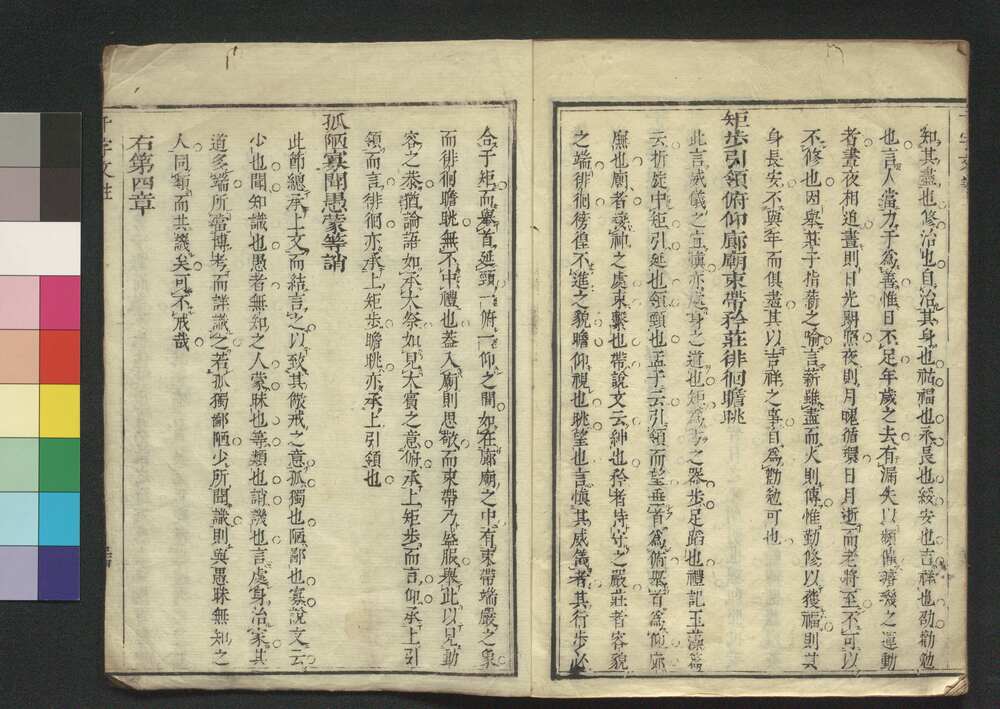 知其盡也修治也自治其身也祜福也永長也綏安也吉祥也劭勸勉
也言人當力于爲善惟日不足年歲之去有漏失以頻催璇璣之運動
者晝夜相追晝則日光朗照夜則月魄循環日月逝而老將至不可以
不修也因舉莊子指薪之喻言薪雖盡而火則傳惟勤修以獲福則其
身長安不與年而俱盡其以吉祥之事自爲勸勉可也
矩步引領俯仰廊廟束帶矜莊徘徊瞻眺
此言威儀之宜愼亦處身之道也矩爲方之器步足蹈也禮記玉藻篇
云折旋中矩引延也領頸也孟子云引領而望垂首爲俯舉首爲仰廊
廡也廟者棲神之處束繫也帶說文云紳也矜者持守之嚴莊者容貌
之端徘徊徬徨不進之貌瞻仰視也眺望也言愼其威儀者其行步必
合于矩而舉首延頸一俯一仰之間如在廊廟之中有束帶端嚴之象
而徘徊瞻眺無不中禮也蓋入廟則思敬而束帶乃盛服舉此以見動
容之恭猶論語如承大祭如見大賓之意俯承上矩步而言仰承上引
領而言徘徊亦承上矩步瞻眺亦承上引領也
孤陋寡聞愚蒙等誚
此節總承上文而結言之以致其儆戒之意孤獨也陋鄙也寡說文云
少也聞知識也愚者無知之人蒙昧也等類也誚譏也言處身治家其
道多端所當博考而詳識之若孤獨鄙陋少所聞識則與愚昧無知之
人同類而共譏矣可不戒哉
右第四章